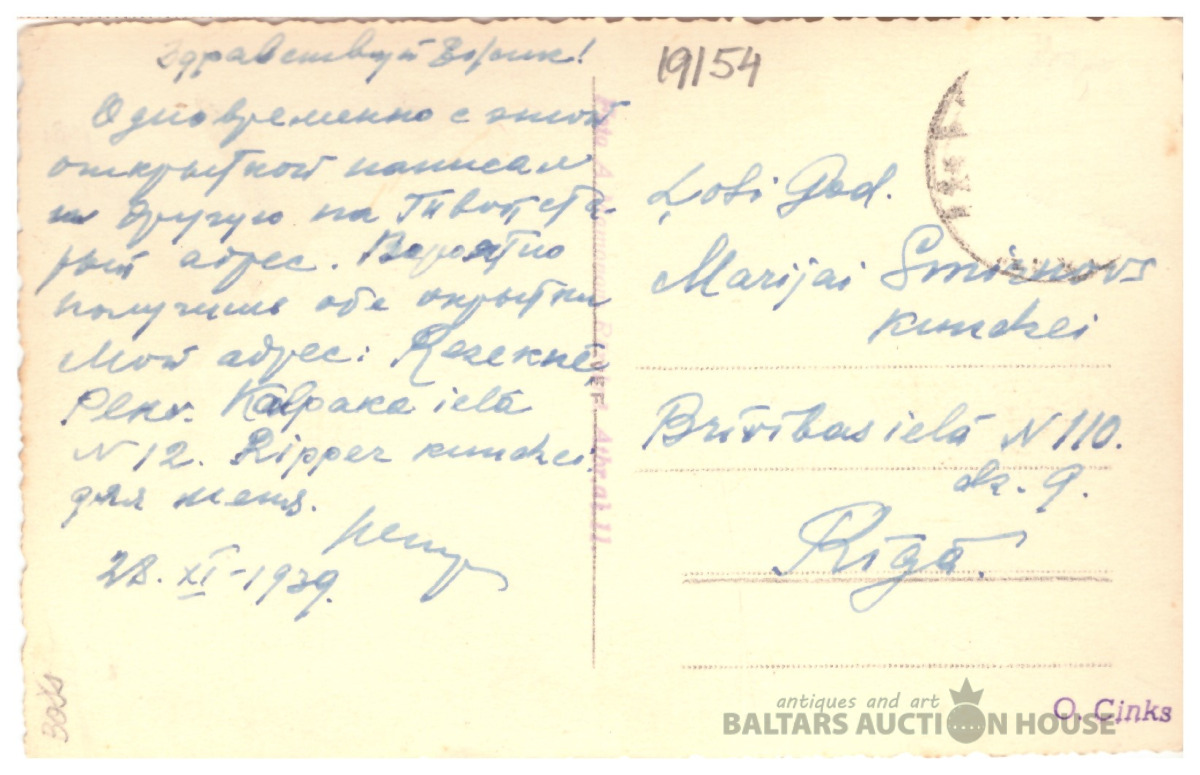 Здравствуй Зорик!
Одновременно с этой
открыткой написал
и другую на Твой ста-
рый адрес. Вероятно
получишь обе окрытки
Мой адрес: Rezeknē,
Plkv. Kalpaka ielā
N 12. Ripper kundzei
для меня.
28. XI-1939.
19/54
Ļoti God.
Marijai Smirnovs
kundzei
Brīvibas ielā N 110.
dz. 9.
Rīgā.
O. Cinks
antiques and art
BALTARS AUCTION HOUSE